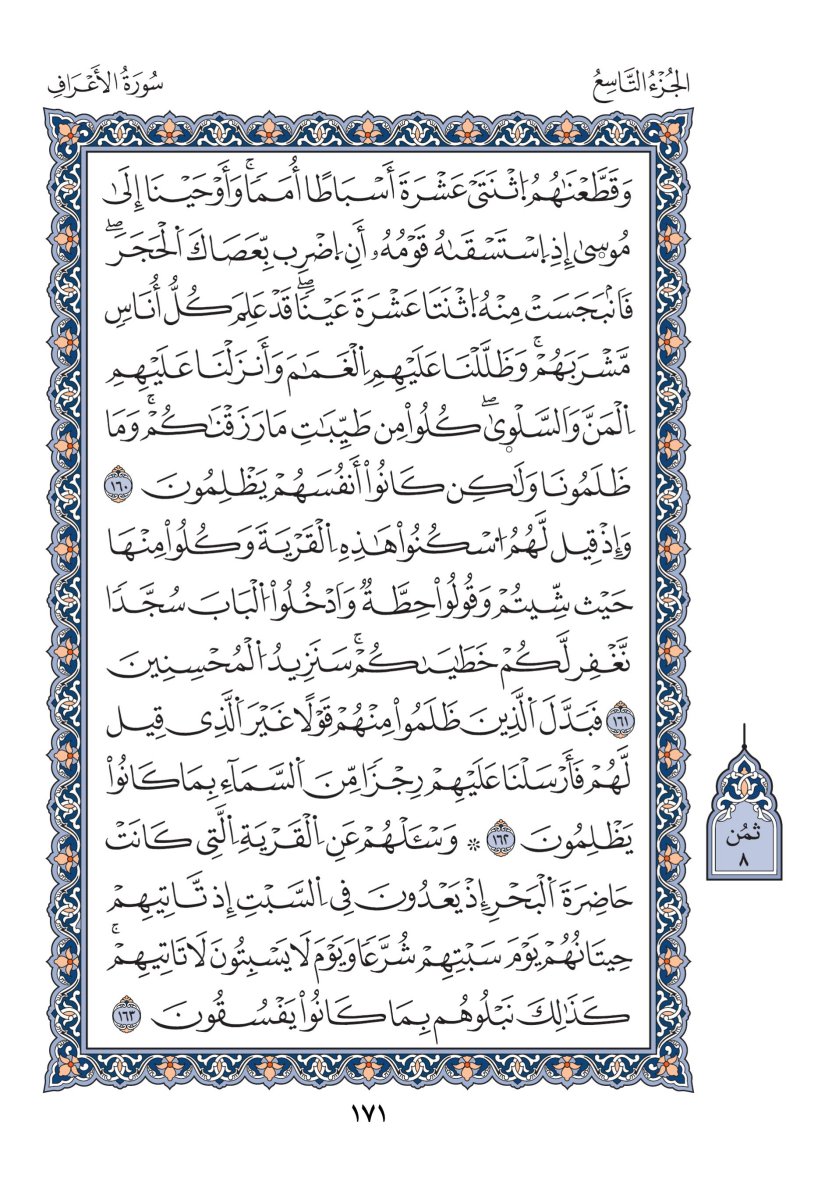 الجُزْءُ التَّاسِعُ
سُورَةُ الأَعْرَافِ
وَقَطَّعْنَٰهُمُ اُ۪ثْنَتَيْ عَشْرَةَ أَسْبَاطًا أُمَمٗاۚ وَأَوْحَيْنَا إِلَىٰ
مُوسۭىٰ إِذِ اِ۪سْتَسْقَىٰهُ قَوْمُهُۥ أَنِ اِ۪ضْرِب بِّعَصَاكَ اَ۬لْحَجَرَۖ
فَانۢبَجَسَتْ مِنْهُ اُ۪ثْنَتَا عَشْرَةَ عَيْنٗاۖ قَدْ عَلِمَ كُلُّ أُنَاسٖ
مَّشْرَبَهُمْۚ وَظَلَّلْنَا عَلَيْهِمِ اِ۬لْغَمَٰمَ وَأَنزَلْنَا عَلَيْهِمِ
اِ۬لْمَنَّ وَالسَّلْوۭىٰۖ كُلُواْ مِن طَيِّبَٰتِ مَا رَزَقْنَٰكُمْۚ وَمَا
ظَلَمُونَا وَلَٰكِن كَانُواْ أَنفُسَهُمْ يَظْلِمُونَ ١٦٠
وَإِذْ قِيل لَّهُمُ اُ۟سْكُنُواْ هَٰذِهِ اِ۬لْقَرْيَةَ وَكُلُواْ مِنْهَا
حَيْث شِّيتُمْ وَقُولُواْ حِطَّةٞ وَادْخُلُواْ اُ۬لْبَابَ سُجَّدٗا
نَّغْفِر لَّكُمْ خَطَٰيَٰكُمْۚ سَنَزِيدُ اُ۬لْمُحْسِنِينَ
١٦١ فَبَدَّلَ اَ۬لَّذِينَ ظَلَمُواْ مِنْهُمْ قَوْلًا غَيْرَ اَ۬لَّذِي قِيل
لَّهُمْ فَأَرْسَلْنَا عَلَيْهِمْ رِجْزٗا مِّنَ اَ۬لسَّمَآءِ بِمَا كَانُواْ
يَظْلِمُونَ ١٦٢ ۞ وَسْـَٔلْهُمْ عَنِ اِ۬لْقَرْيَةِ اِ۬لَّتِي كَانَتْ
حَاضِرَةَ اَ۬لْبَحْرِ إِذْ يَعْدُونَ فِي اِ۬لسَّبْتِ إِذ تَّاتِيهِمْ
حِيتَانُهُمْ يَوْمَ سَبْتِهِمْ شُرَّعٗا وَيَوْمَ لَا يَسْبِتُونَ لَا تَاتِيهِمْۚ
كَذَٰلِكَ نَبْلُوهُم بِمَا كَانُواْ يَفْسُقُونَ ١٦٣
ثمُن
٨
١٧١